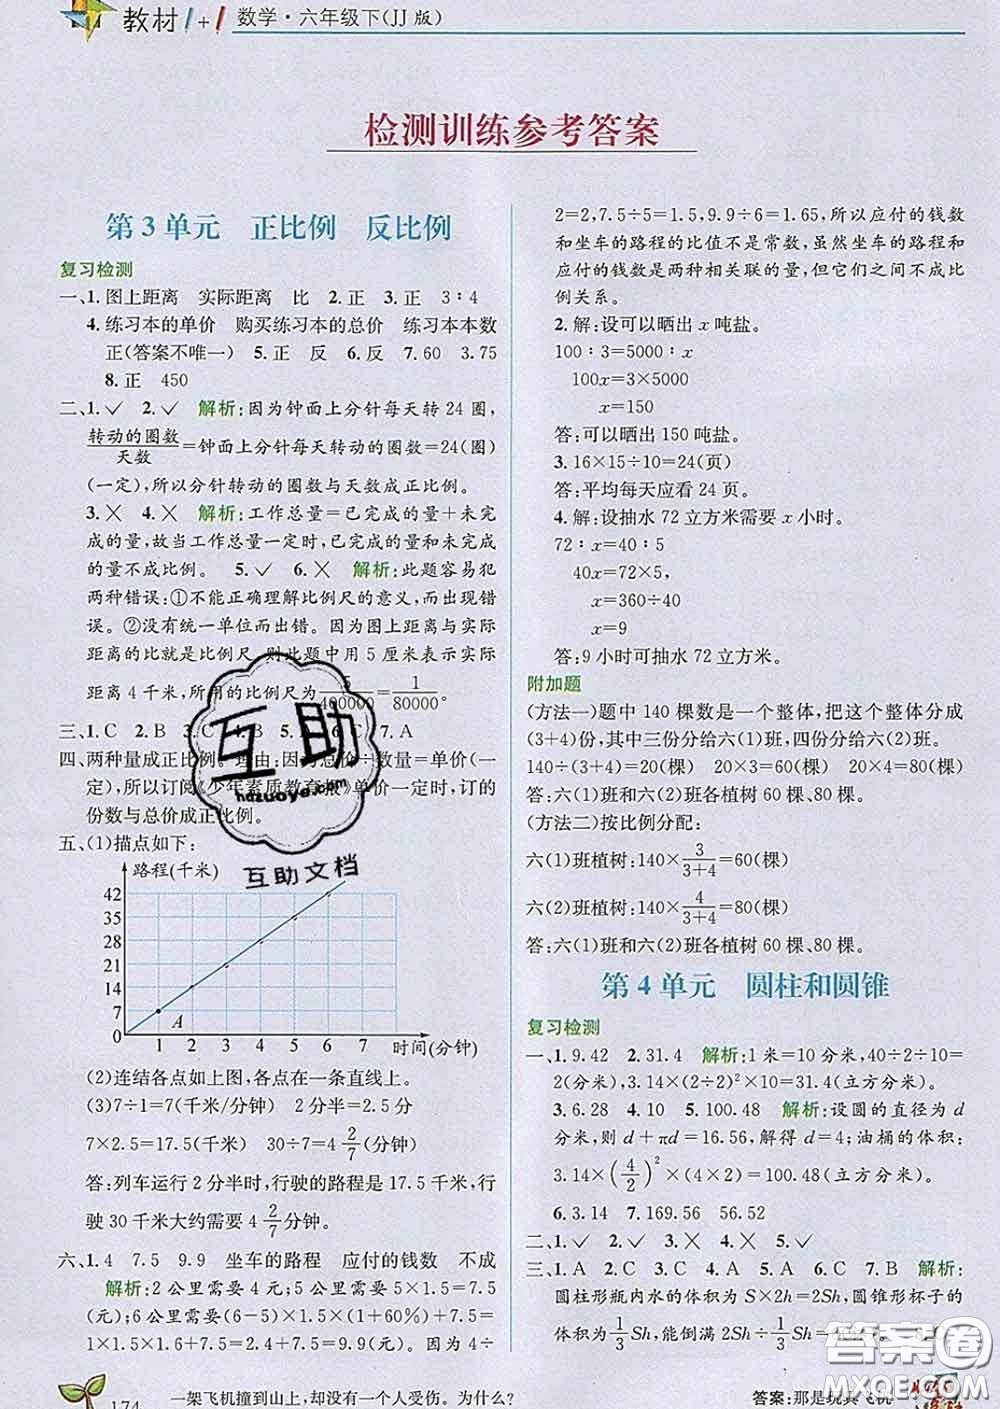 教材1+1 数学·六年级下(JJ版)
检测训练参考答案
第3单元 正比例 反比例
复习检测
一、1.图上距离 实际距离 比 2.正 3.正 3∶4
4.练习本的单价 购买练习本的总价 练习本本数
正(答案不唯一) 5.正 反 6.反 7.60 3.75
8.正 450
二、1.✓ 2.✓ 解析:因为钟面上分针每天转24圈,
转动的圈数/天数=钟面上分针每天转动的圈数=24(圈)
(一定),所以分针转动的圈数与天数成正比例。
3.╳ 4.╳ 解析:工作总量=已完成的量+未完
成的量,故当工作总量一定时,已完成的量和未完成
的量不成比例。 5.✓ 6.╳ 解析:此题容易犯
两种错误:①不能正确理解比例尺的意义,而出现错
误。②没有统一单位而出错。因为图上距离与实际
距离的比就是比例尺,则此题中用5厘米表示实际
距离4千米,所用的比例尺为5/400000=1/80000。
三、1.C 2.B 3.C 7.A
四、两种量成正比例。理由:因为总价÷数量=单价(一
定),所以订阅《少年素质教育报》单价一定时,订的
份数与总价成正比例。
五、(1)描点如下:
路程(千米)
42
35
28
21
14
7
0
A
1 2 3 4 5 6 7 时间(分钟)
(2)连结各点如上图,各点在一条直线上。
(3)7÷1=7(千米/分钟) 2分半=2.5分
7×2.5=17.5(千米) 30÷7=4 2/7(分钟)
答:列车运行2分半时,行驶的路程是17.5千米,行
驶30千米大约需要4 2/7分钟。
六、1.4 7.5 9.9 坐车的路程 应付的钱数 不成
解析:2公里需要4元;5公里需要5×1.5=7.5
(元);6公里需要(6-5)×1.5×(1+60%)+7.5=
1×1.5×1.6+7.5=2.4+7.5=9.9(元)。因为4÷
2=2,7.5÷5=1.5,9.9÷6=1.65,所以应付的钱数
和坐车的路程的比值不是常数,虽然坐车的路程和
应付的钱数是两种相关联的量,但它们之间不成比
例关系。
2.解:设可以晒出x吨盐。
100∶3=5000∶x
100x=3×5000
x=150
答:可以晒出150吨盐。
3.16×15÷10=24(页)
答:平均每天应看24页。
4.解:设抽水72立方米需要x小时。
72∶x=40∶5
40x=72×5,
x=360÷40
x=9
答:9小时可抽水72立方米。
附加题
(方法一)题中140棵数是一个整体,把这个整体分成
(3+4)份,其中三份分给六(1)班,四份分给六(2)班。
140÷(3+4)=20(棵) 20×3=60(棵) 20×4=80(棵)
答:六(1)班和六(2)班各植树60棵、80棵。
(方法二)按比例分配:
六(1)班植树:140×3/(3+4)=60(棵)
六(2)班植树:140×4/(3+4)=80(棵)
答:六(1)班和六(2)班各植树60棵、80棵。
第4单元 圆柱和圆锥
复习检测
一、1.9.42 2.31.4 解析:1米=10分米,40÷2÷10=
2(分米),3.14×(2÷2)²×10=31.4(立方分米)。
3.6.28 4.10 5.100.48 解析:设圆的直径为d
分米,则d+πd=16.56,解得d=4;油桶的体积:
3.14×(4/2)²×(4×2)=100.48(立方分米)。
6.3.14 7.169.56 56.52
二、1.✓ 2.✓ 3.╳ 4.╳ 5.✓
三、1.A 2.C 3.C 4.A 5.A 6.A 7.B 解析:
圆柱形瓶内水的体积为S×2h=2Sh,圆锥形杯子的
体积为1/3Sh,能倒满2Sh÷1/3Sh
174 一架飞机撞到山上,却没有一个人受伤。为什么?
答案:那是玩具飞机
互助
hdzuoye.com
互助文档
答案圈